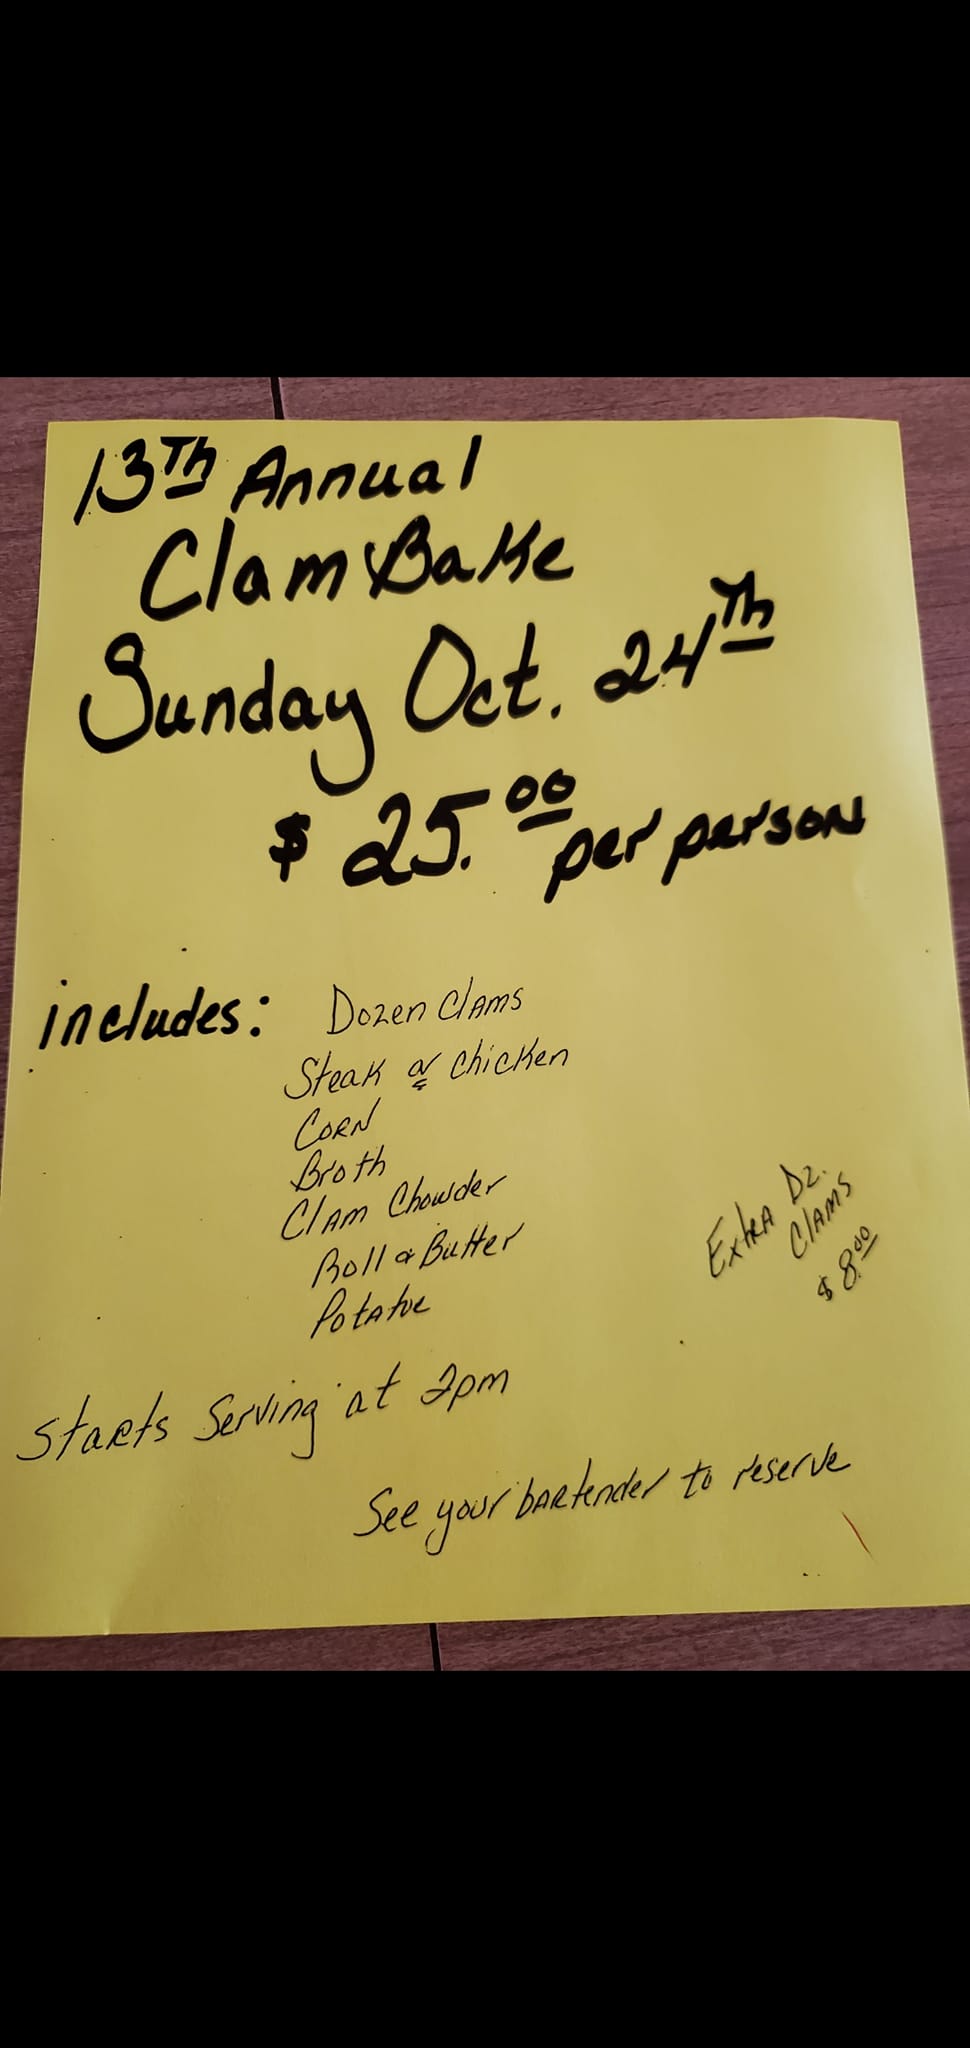 13Th Annual
Clam Bake
Sunday Oct. 24Th
$ 25.00 per person
includes: Dozen Clams
Steak or Chicken
Corn
Broth
Clam Chowder
Roll & Butter
Potatoe
Extra Dz.
Clams
$ 8.00
Starts Serving at 2pm
See your bartender to reserve